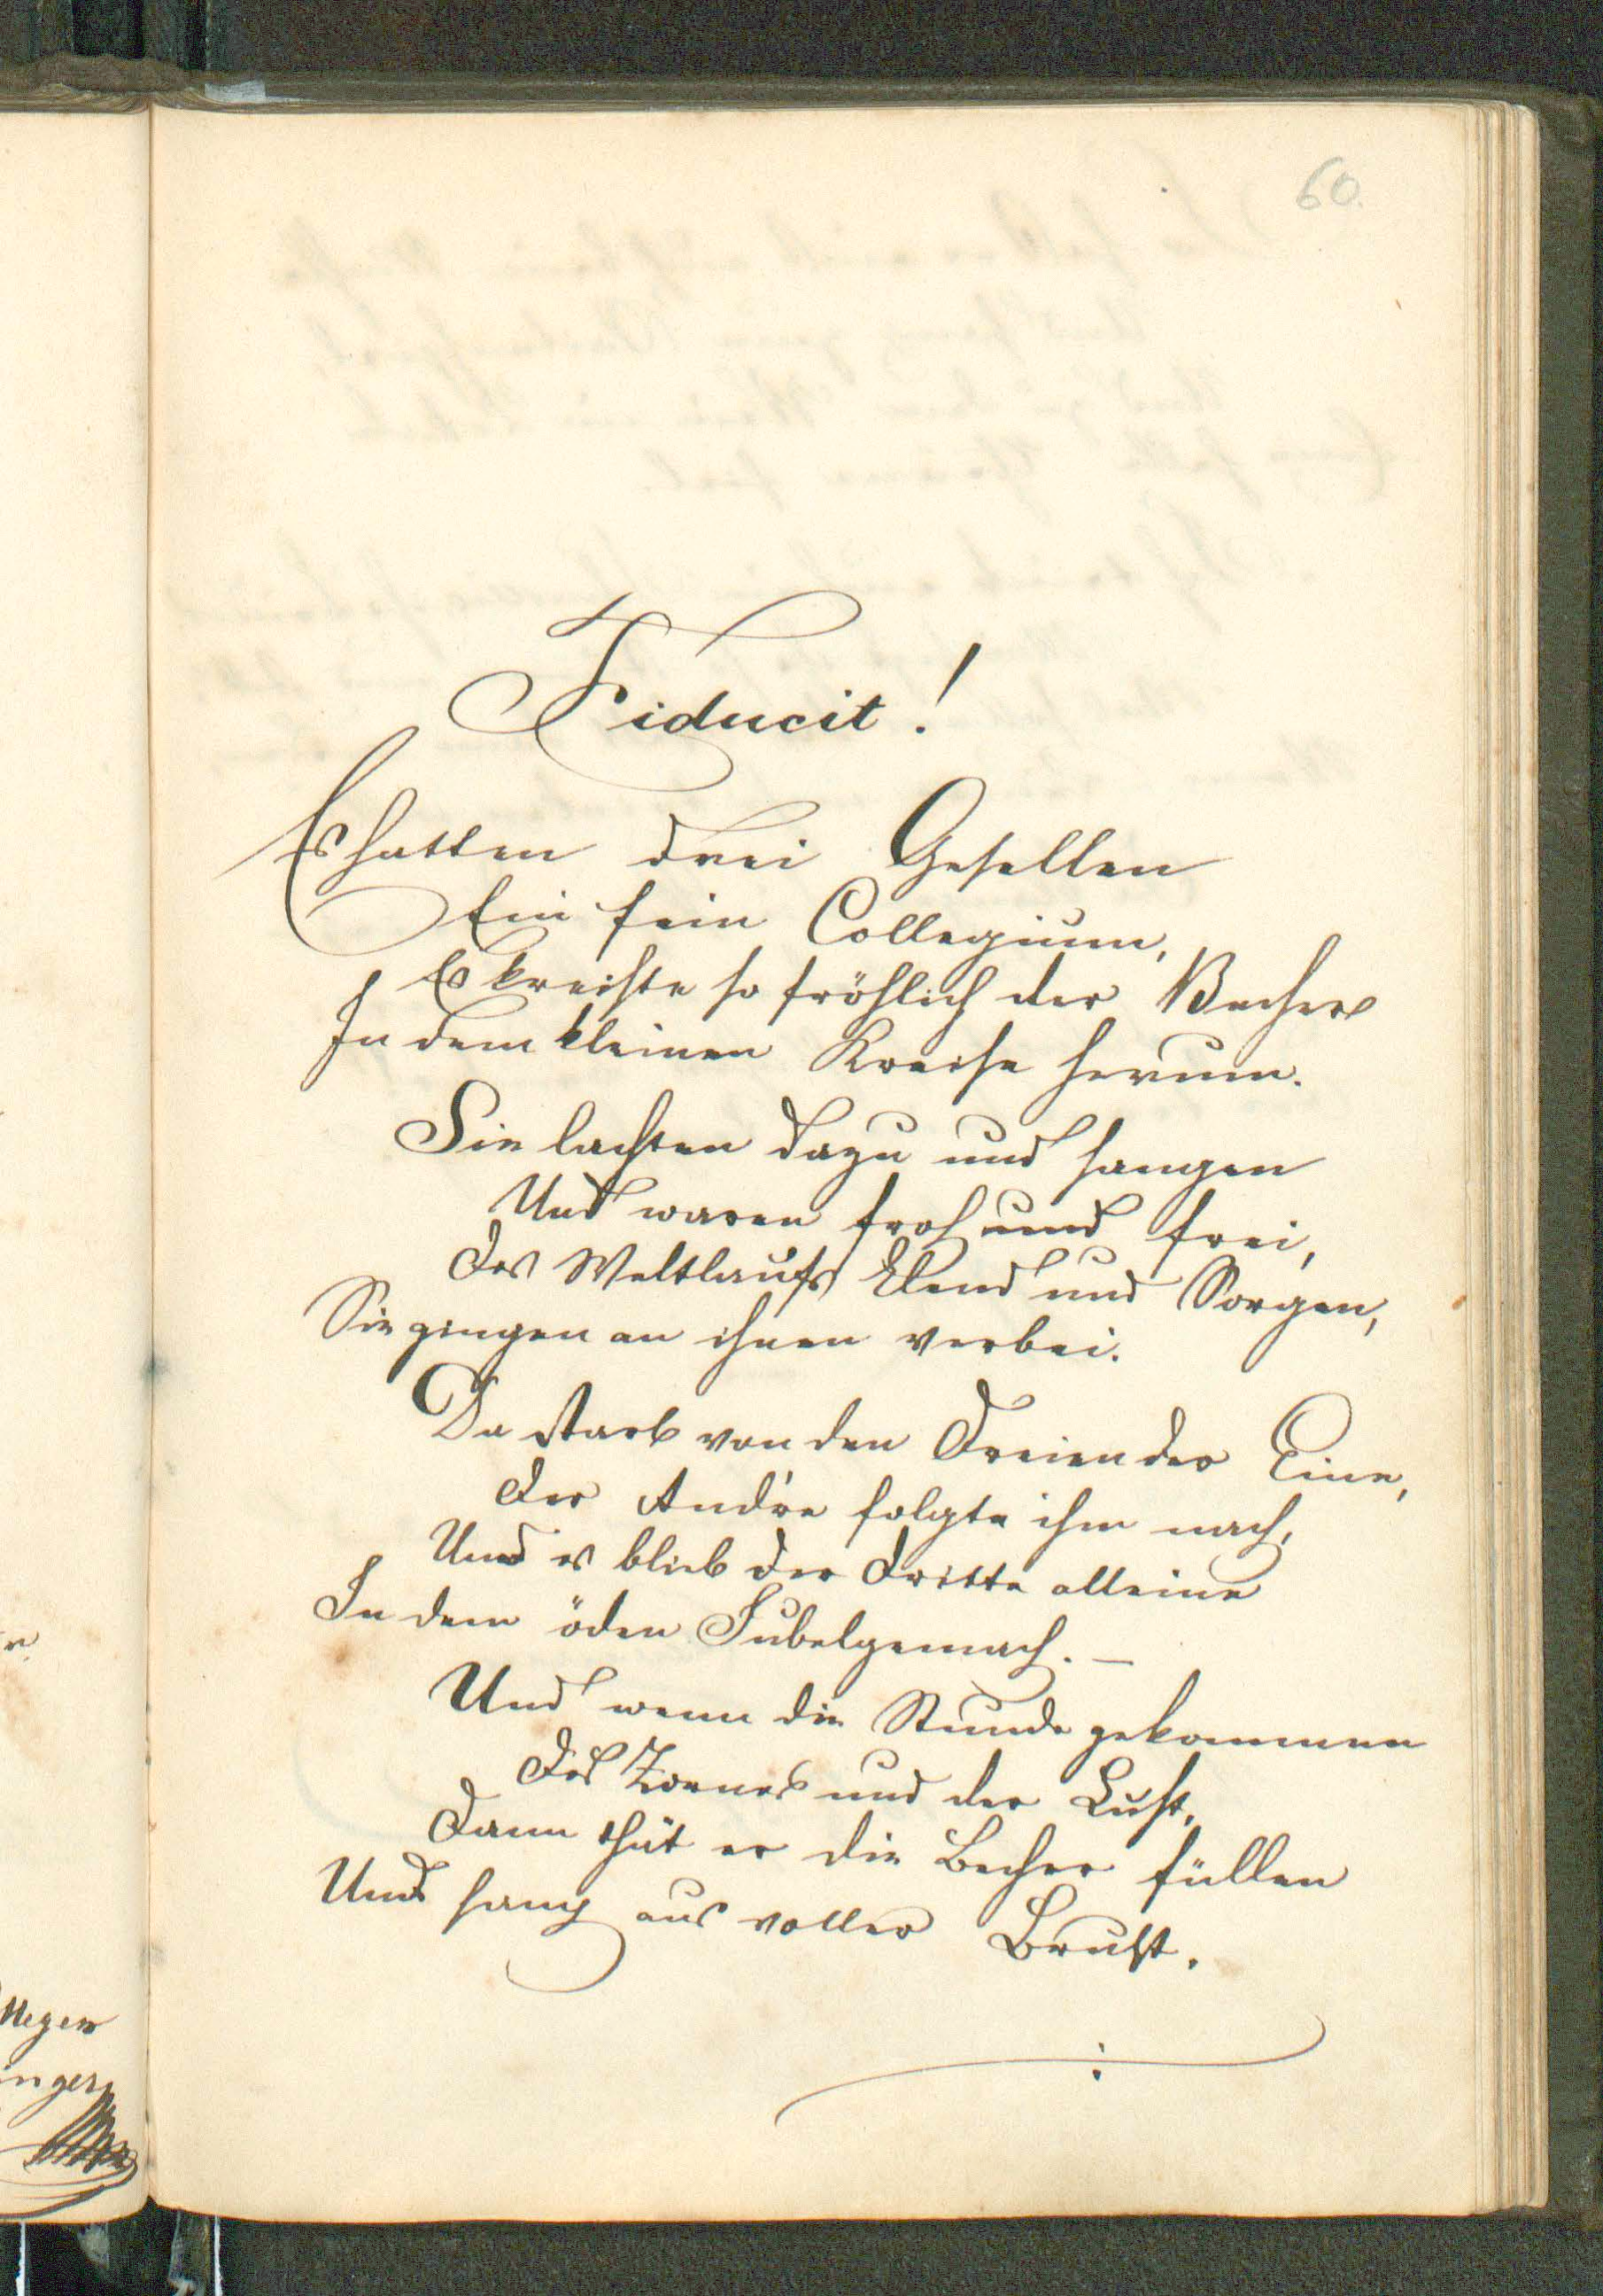 60.
Fiducit!
Es hatten drei Gesellen
Ein fein Collegium,
Es kreiste so fröhlich der Becher
In dem kleinen Kreise herum.
Sie lachten dazu und sangen
Und waren froh und frei,
Des Weltlaufs Elend und Sorgen,
Sie gingen an ihnen vorbei.
Da starb von den Dreien der Eine,
Der And're folgte ihm nach,
Und es blieb der Dritte alleine
In dem öden Jubelgemach. —
Und wenn die Stunde gekommen
Des Zornes und der Lust,
Dann thät er die Becher füllen
Und sang aus voller Brust.